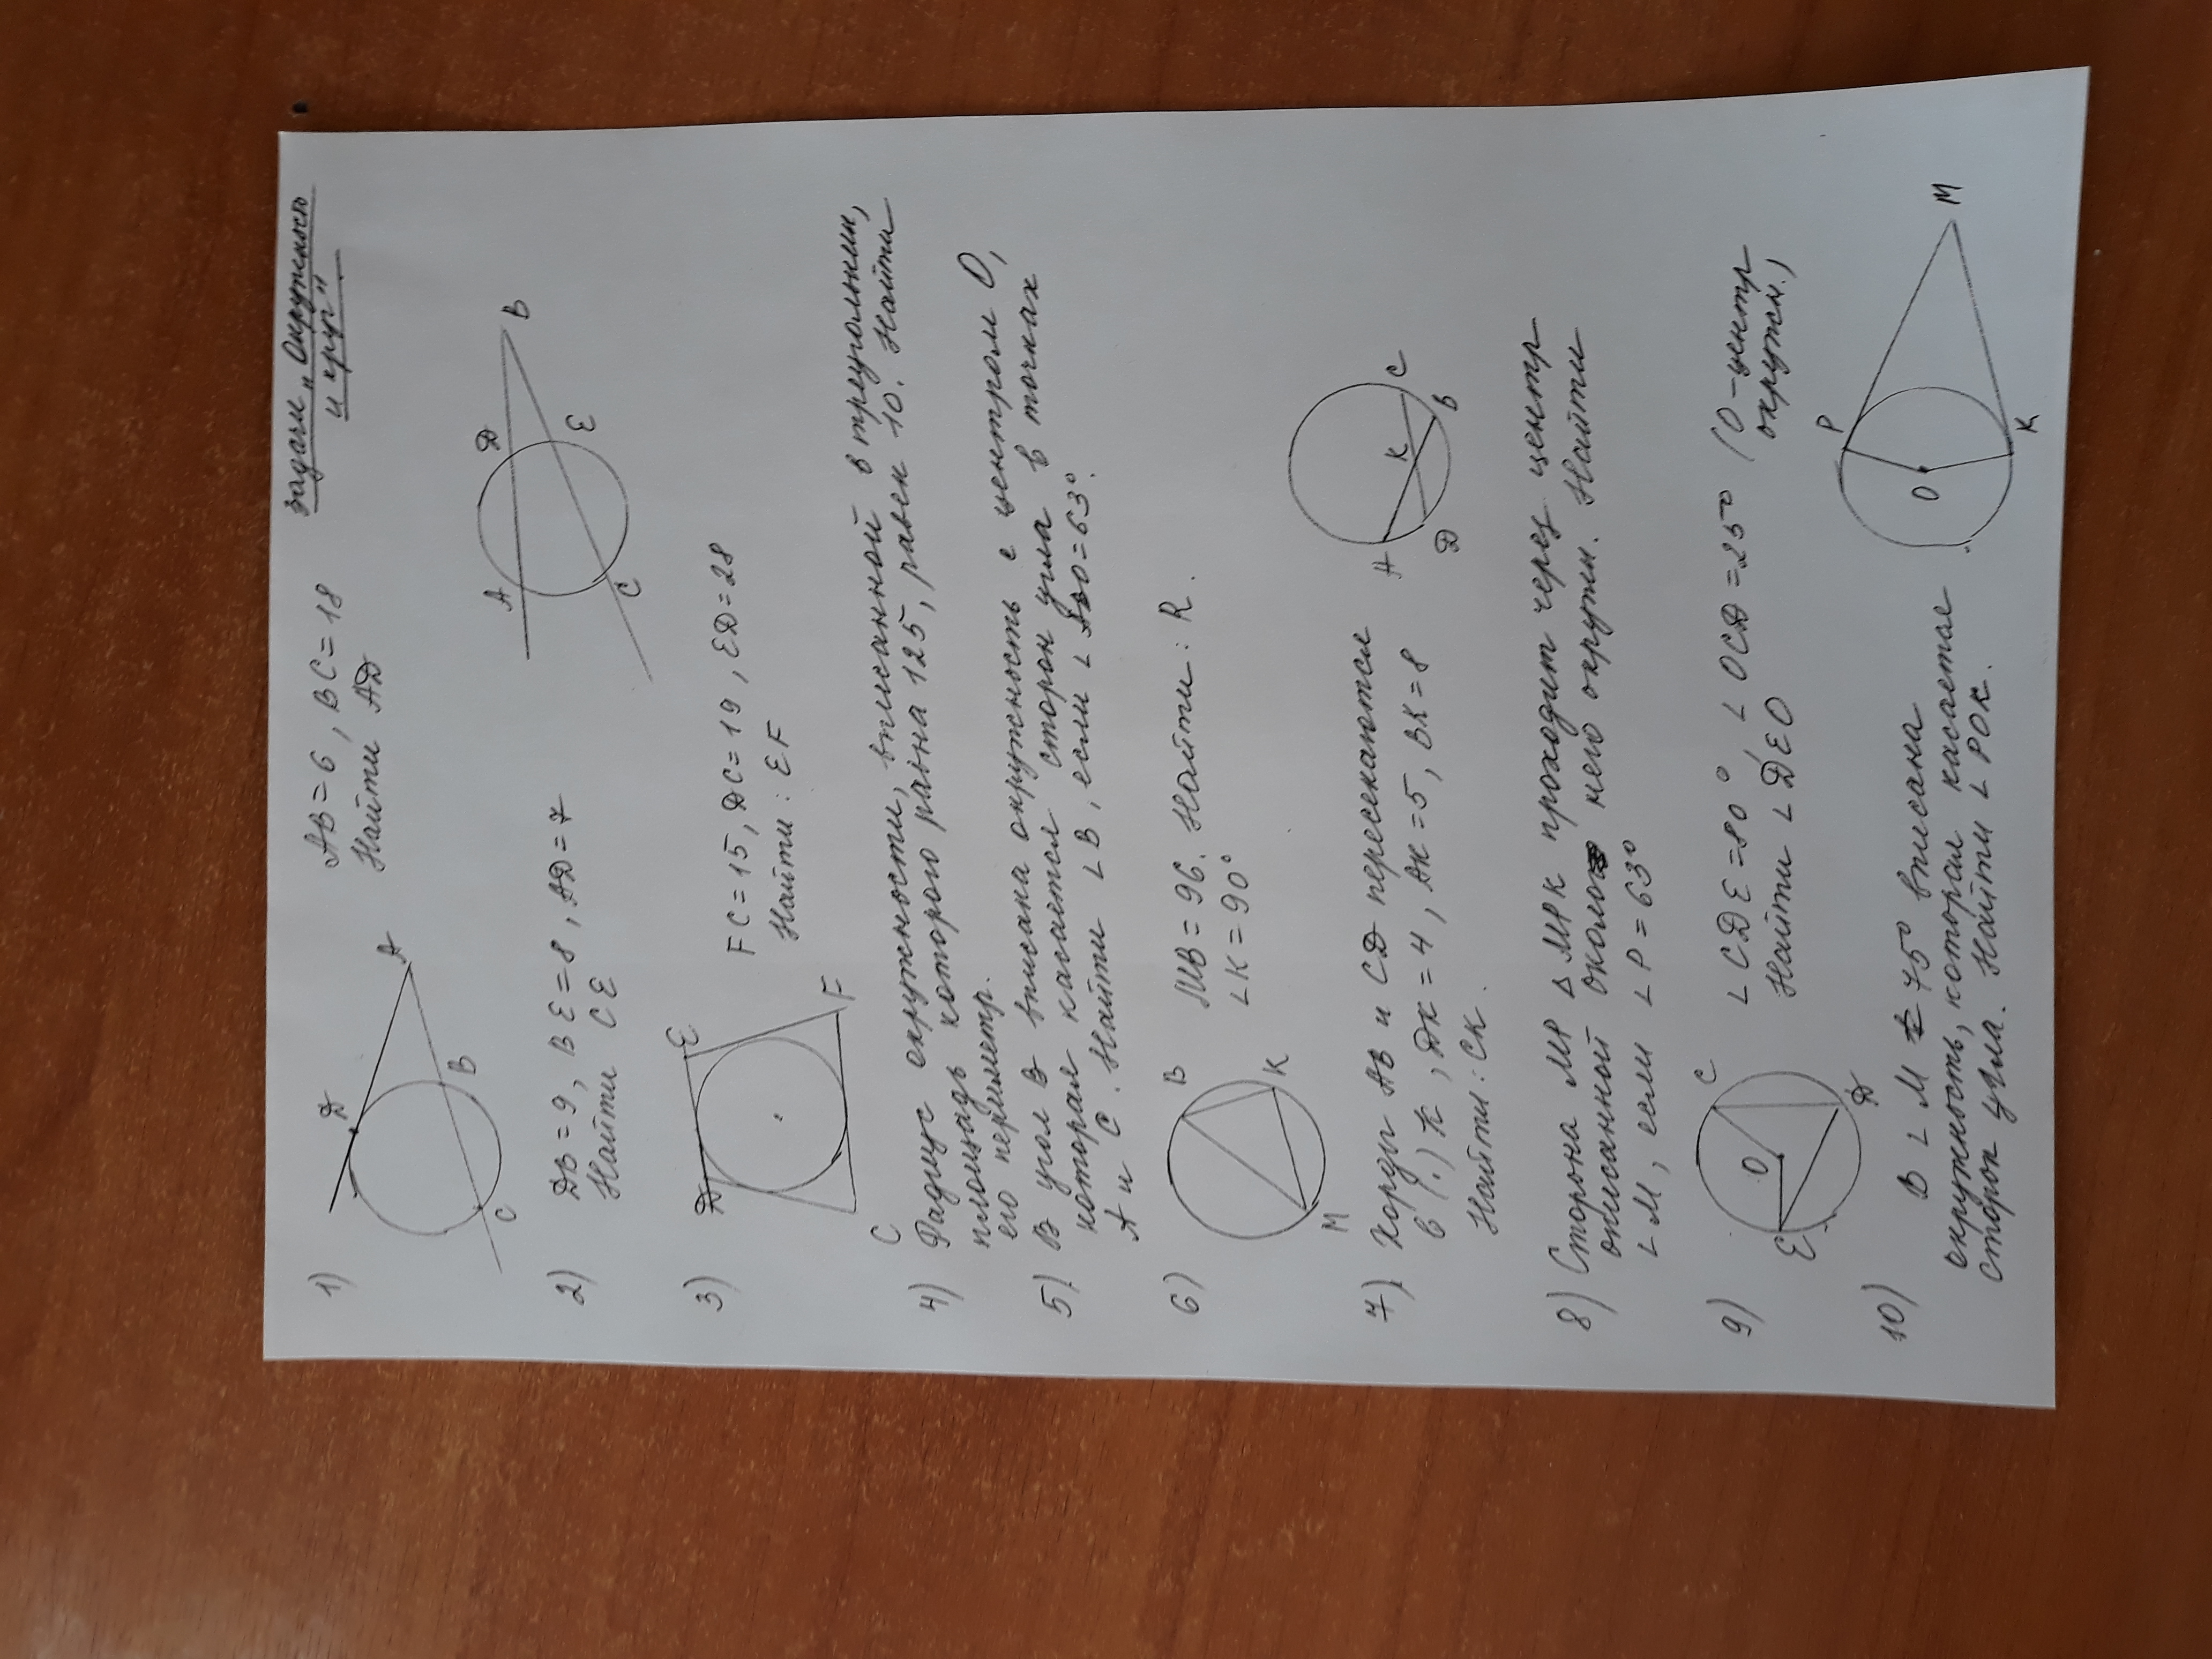 Задачи „Окружность
и круг"
1)
D
A
B
C
AB = 6, BC = 18
Найти AD
2) DB = 9, BE = 8, AD = 7
Найти CE
A
D
B
E
C
3)
D
E
F
C
FC = 15, DC = 19, ED = 28
Найти: EF
4) Радиус окружности, вписанной в треугольник,
площадь которого равна 125, равен 10. Найти
его периметр.
5) В угол B вписана окружность с центром O,
которая касается сторон угла в точках
A и C. Найти ∠B, если ∠ = 63°.
6)
B
K
M
MB = 96. Найти: R.
∠K = 90°
7) Хорды AB и CD пересекаются
в (·) K, DK = 4, AK = 5, BK = 8
Найти: CK.
A
D
K
C
B
8) Сторона MP △ MPK проходит через центр
описанной около него окружн. Найти
∠M, если ∠P = 63°
9)
E
O
C
D
∠CDE = 80°, ∠OCD = 25° (O - центр
окружн.)
Найти ∠DEO
10) В ∠M 75° вписана
окружность, которая касается
сторон угла. Найти ∠POK.
P
O
K
M